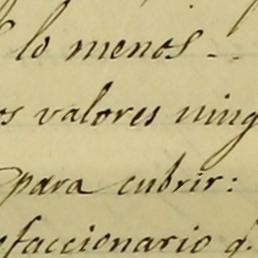 lo menos - -
os valores ning
para cubrir:
efaccionario q.